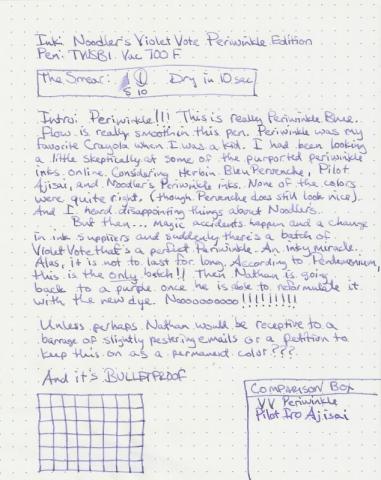 Ink: Noodler's Violet Vote Periwinkle Edition
Pen: TWSBI Vac 700 F
The Smear: 5 10 Dry in 10 sec
Intro: Periwinkle!!! This is really Periwinkle Blue.
Flow is really smooth in this pen. Periwinkle was my
favorite Crayola when I was a kid. I had been looking
a little skeptically at some of the purported periwinkle
inks online. Considering Herbin Bleu Pervenche, Pilot
Ajisai, and Noodler's Periwinkle inks. None of the colors
were quite right, (though Pervenche does still look nice).
And I heard disappointing things about Noodler's.
But then... magic accidents happen and a change
in ink suppliers and suddenly there's a batch of
Violet Vote that's a perfect Periwinkle. An inky miracle.
Alas, it is not to last for long. According to Pendemonium,
this is the only batch!! Then Nathan is going
back to a purple once he is able to reformulate it
with the new dye. Nooooooooooo!!!!!!!!!
Unless perhaps Nathan would be receptive to a
barrage of slightly pestering emails or a petition to
keep this on as a permanent color???
And it's BULLETPROOF
COMPARISON BOX
VV Periwinkle
Pilot Iro Ajisai